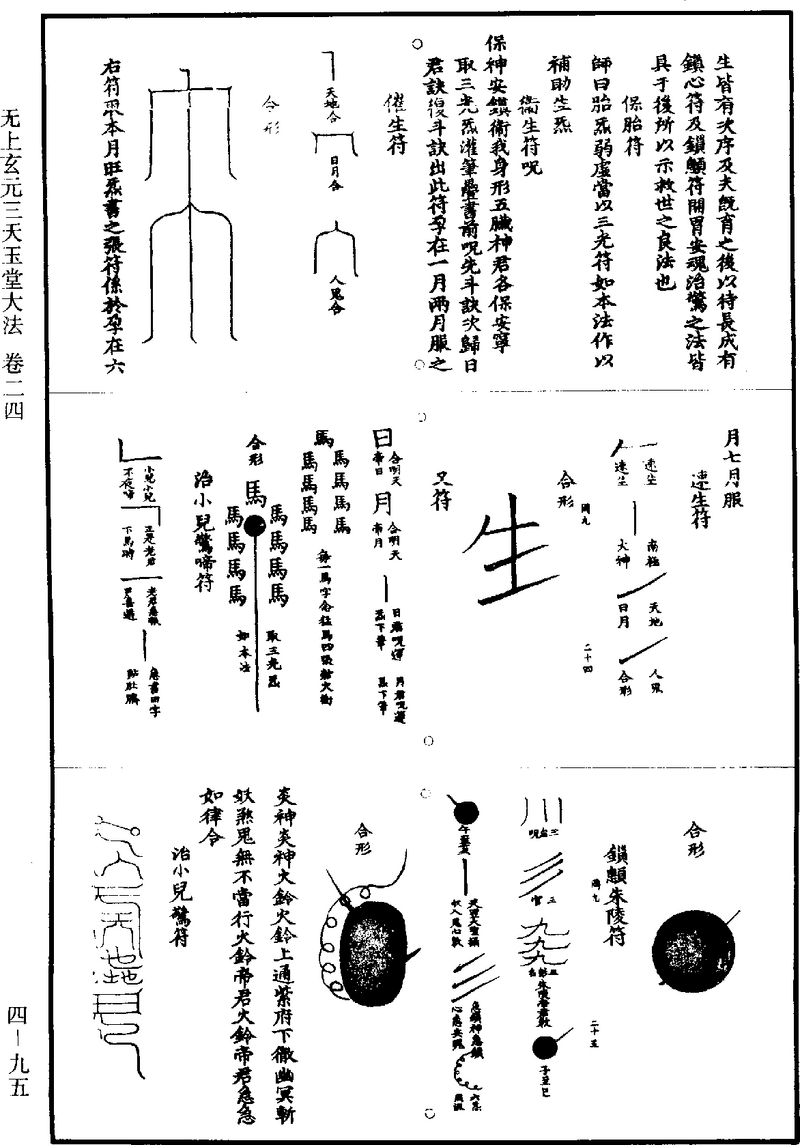 生皆有次序及夫旣育之後以待長成有
鎖心符及鎖顖符開胃安魂治驚之法皆
具于後所以示救世之良法也
保胎符
師曰胎炁弱虛當以三光符如本法作以
補助生炁
衞生符呪
保神安鎮衞我身形五臟神君各保安寧
取三光炁灌筆疊書前呪先斗訣次歸日
君訣復斗訣出此符孕在一月兩月服之
催生符
天地合
日月合
人鬼合
合形
右符取本月旺炁書之張符係於孕在六
月七月服
速生符
速生
速生
南極
大神
天地
日月
人鬼
合形
合形
岡九
二十四
又符
日
合明天
帝日
月
合明天
帝月
日君呪運
炁下筆
月君呪運
炁下筆
馬
馬馬馬馬
馬馬馬馬
每一馬字念
合形
馬
馬馬馬馬
馬馬馬馬
取三光炁
如本法
治小兒驚啼符
小兒小兒
不夜啼
正是老君
下馬時
老君急敕
急書四字
貼肚臍
合形
鎖顖朱陵符
岡九
二十五
三台呪
三官
九九九
子丑巳
午
合形
炎神炎神火鈴火鈴上通紫府下徹幽冥斬
妖煞鬼無不當行火鈴帝君火鈴帝君急急
如律令
治小兒驚符
无上玄元三天玉堂大法 卷二四
四－九五